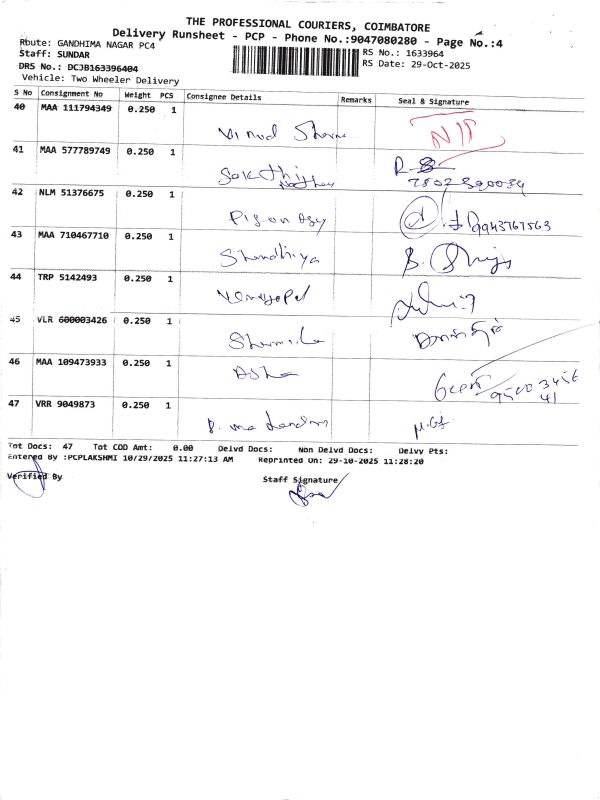 THE PROFESSIONAL COURIERS, COIMBATORE
Delivery Runsheet - PCP - Phone No.:9047080280 - Page No.:4
Route: GANDHIMA NAGAR PC4
RS No.: 1633964
Staff: SUNDAR
RS Date: 29-Oct-2025
DRS No.: DCJB163396404
Vehicle: Two Wheeler Delivery
S No Consignment No Weight PCS Consignee Details Remarks Seal & Signature
40 MAA 111794349 0.250 1
Vinod Sharma
41 MAA 577789749 0.250 1
Sakthi
42 NLM 51376675 0.250 1
9943767563
43 MAA 710467710 0.250 1
Sandhiya
44 TRP 5142493 0.250 1
Venugopal
45 VLR 600003426 0.250 1
Sharmila
46 MAA 109473933 0.250 1
Asha
95003456
41
47 VRR 9049873 0.250 1
Tot Docs: 47 Tot COD Amt: 0.00 Delvd Docs: Non Delvd Docs: Delvy Pts:
Entered By :PCPLAKSHMI 10/29/2025 11:27:13 AM Reprinted On: 29-10-2025 11:28:20
Verified By
Staff Signature